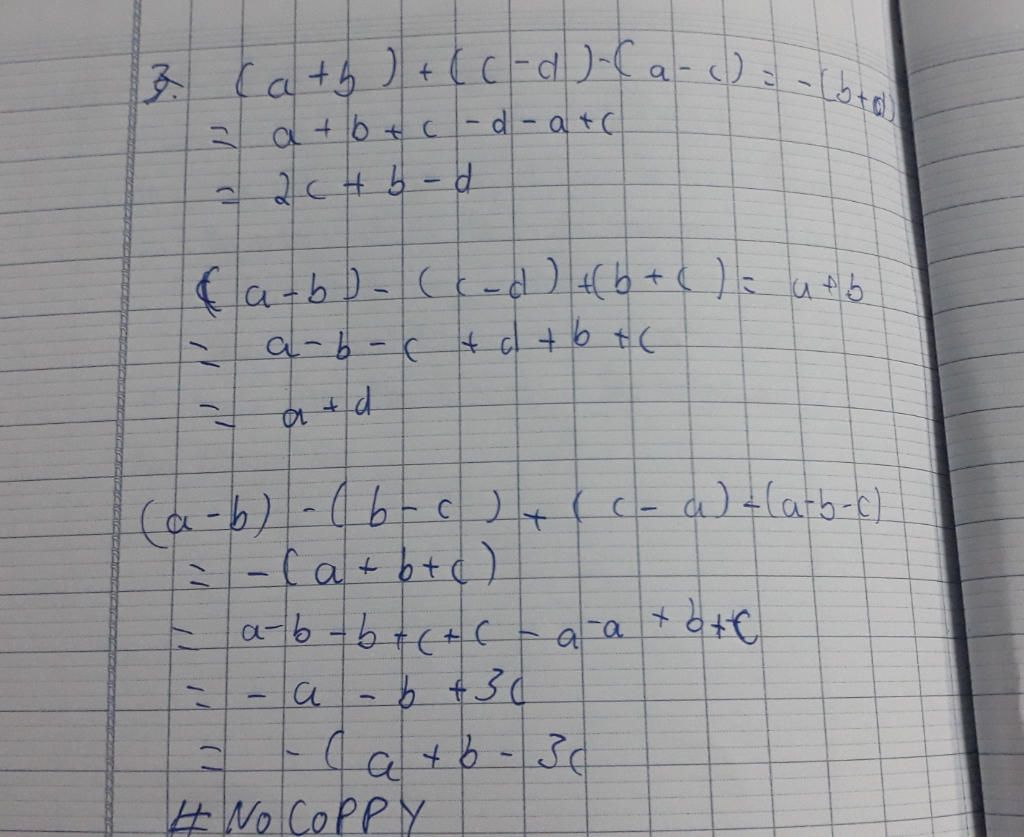 3. (a+b) + (c-d) - (a-c) = -(b+d)
= a+b+c-d-a+c
= 2c+b-d
(a-b) - (c-d) + (b+c) = a+b
= a-b-c+d+b+c
= a+d
(a-b) - (b-c) + (c-a) - (a-b-c)
= -(a+b+c)
= a-b-b+c+c-a-a+b+c
= -a-b+3c
= -(a+b-3c
# NO COPPY